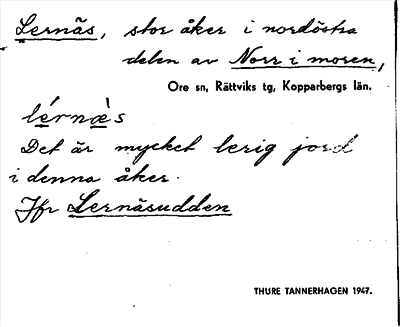 Lernäs, stor åker i nordöstra
delen av Norr i moren,
Ore sn, Rättviks tg, Kopparbergs län.
lérnæ̀s
Det är mycket lerig jord
i denna åker.
Jfr Lernäsudden
THURE TANNERHAGEN 1947.